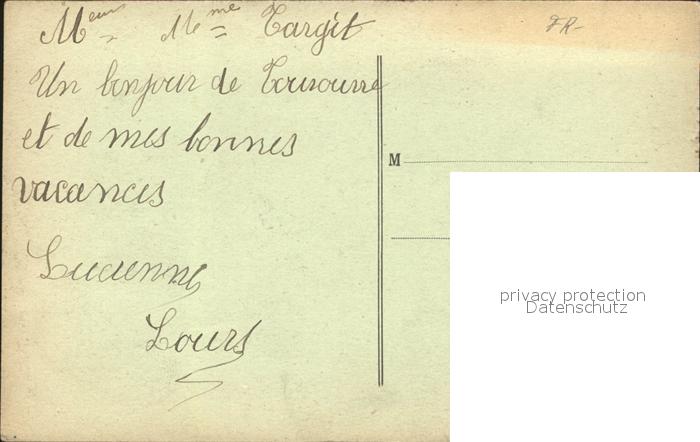 Meur Mme Targit
FR-
Un bonjour de
et de mes bonnes
vacances
M
Lucienne
Lours
privacy protection
Datenschutz